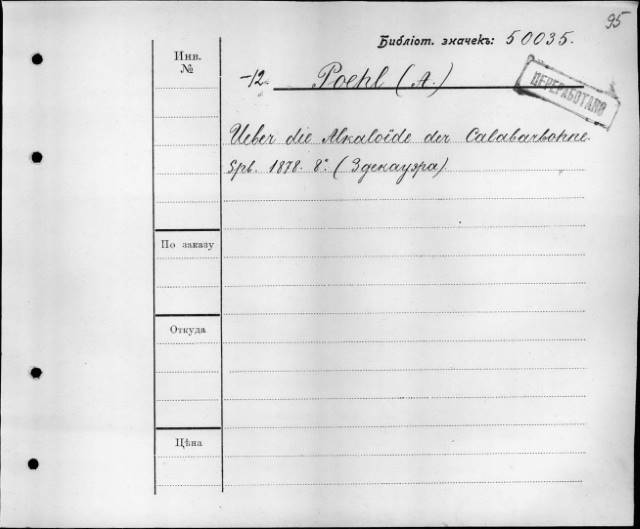 95
Библіот. значекъ: 50035.
Инв. №
-12 Poehl (A.)
ПЕРЕРАБОТАНО
Ueber die Alkaloïde der Calabarbohne.
Spb. 1878. 8°. (Здекауэра)
По заказу
Откуда
Цѣна